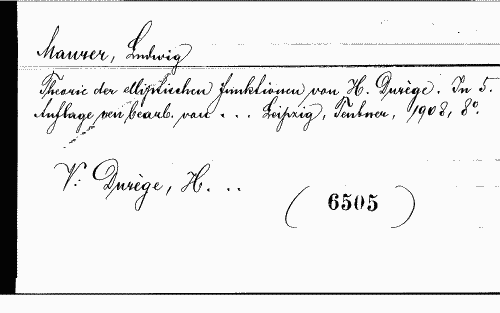 Maurer, Ludwig
Theorie der elliptischen funktionen von H. Durège. In 5.
Auflage neu bearb. von . . . Leipzig, Teubner, 1908, 8º.
V. Durège, H. . .
(6505)